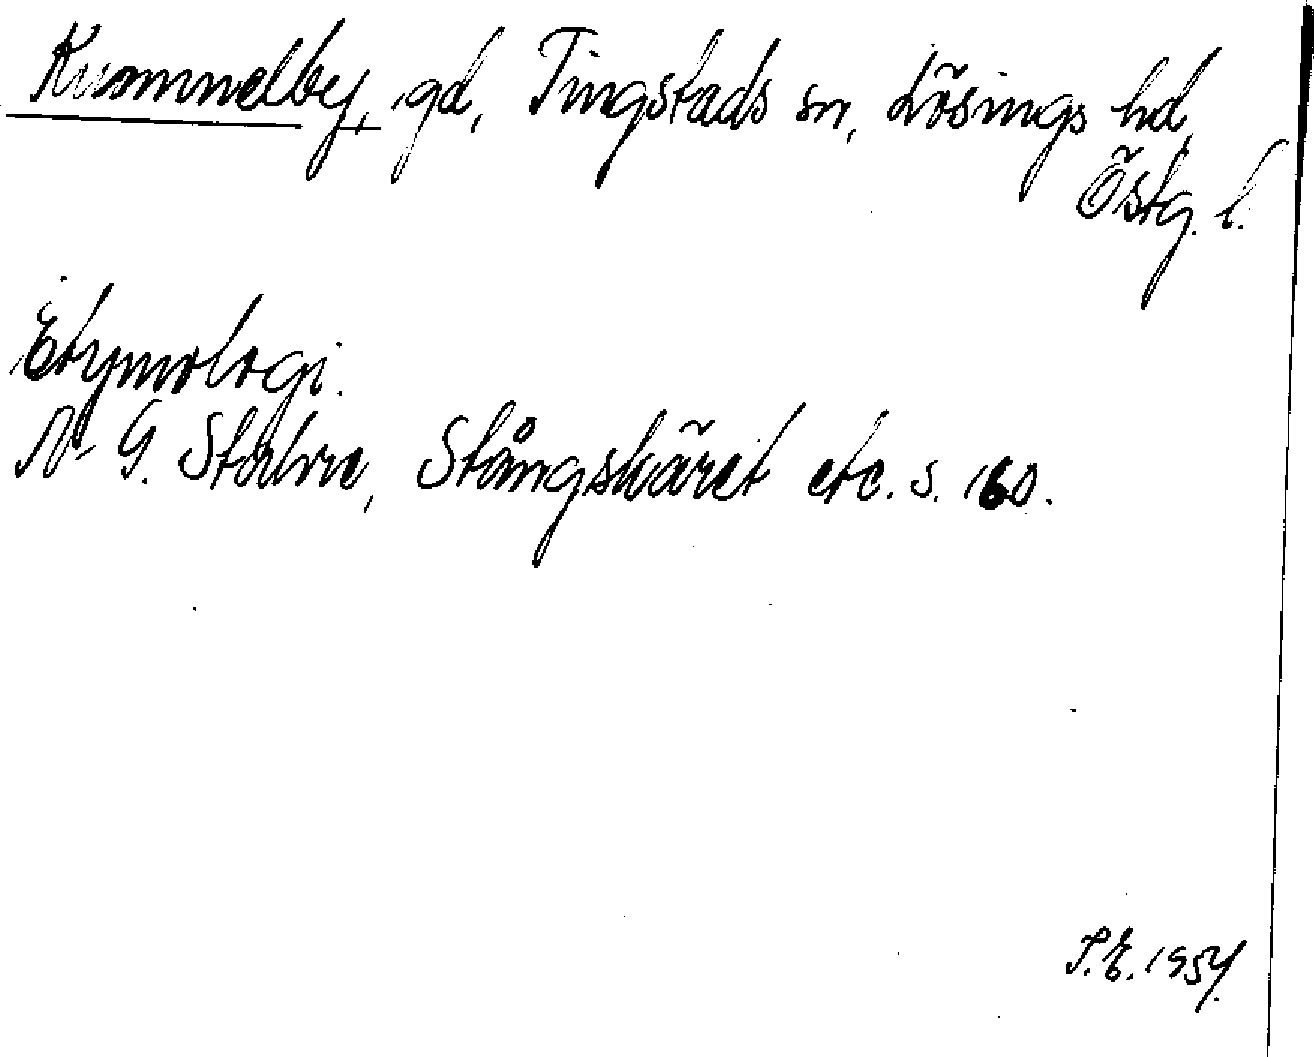 Kummelby, gd, Tingstads sn, Lösings hd,
Östg. l.
Etymologi.
N- G. Stahre, Stångskäret etc. s. 160.
S.E. 1954.